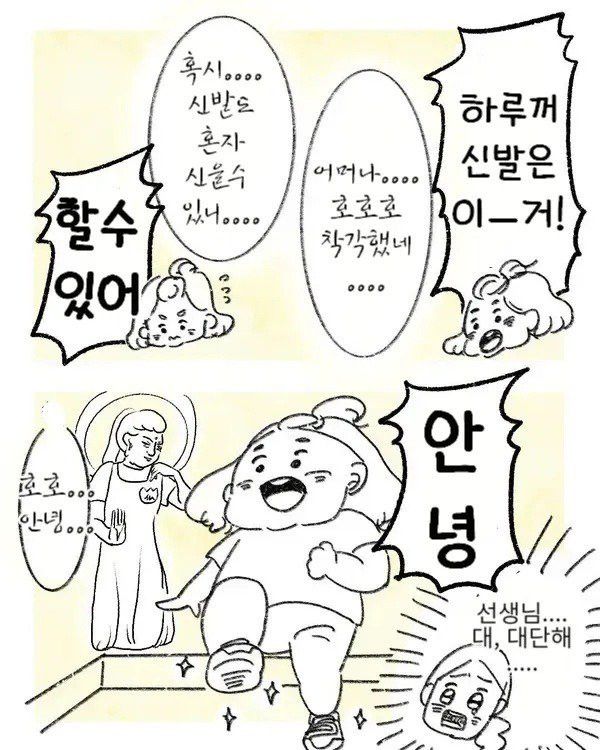 하루꺼
신발은
이ㅡ거!
어머나....
호호호
착각했네
....
혹시....
신발도
혼자
신을수
있니....
할수
있어
안
녕
호호...
안녕...
선생님....
대, 대단해
.....